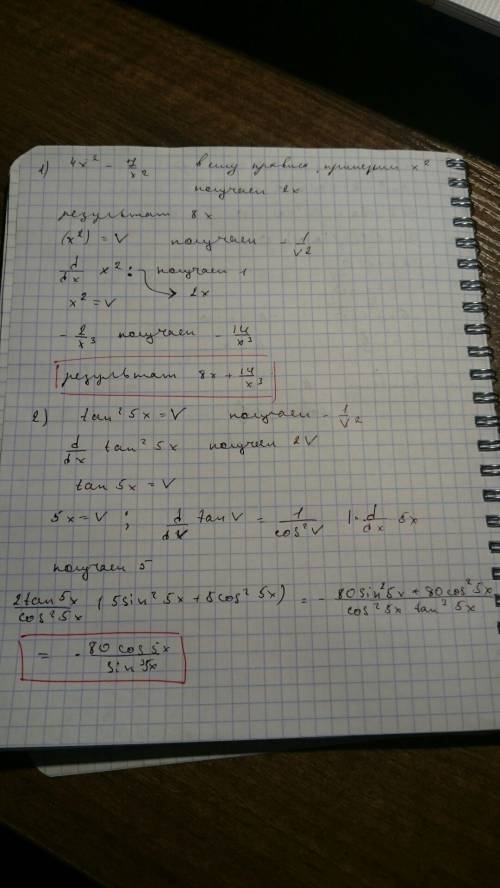 1) 4x² - 7/x² в силу правила, примерим x²
получаем 2x
результат 8x
(x²) = V получаем - 1/V²
d/dx x² : получаем 1
x² = V → 2x
- 2/x³ получаем - 14/x³
результат 8x + 14/x³
2) tan² 5x = V получаем - 1/V²
d/dx tan² 5x получаем 2V
tan 5x = V
5x = V ; d/dV tan V = 1/cos² V 1· d/dx 5x
получаем 5
2tan 5x/cos² 5x (5sin² 5x + 5cos² 5x) = - 80sin² 5x + 80cos² 5x/cos² 5x tan³ 5x
= - 80 cos 5x/sin³ 5x